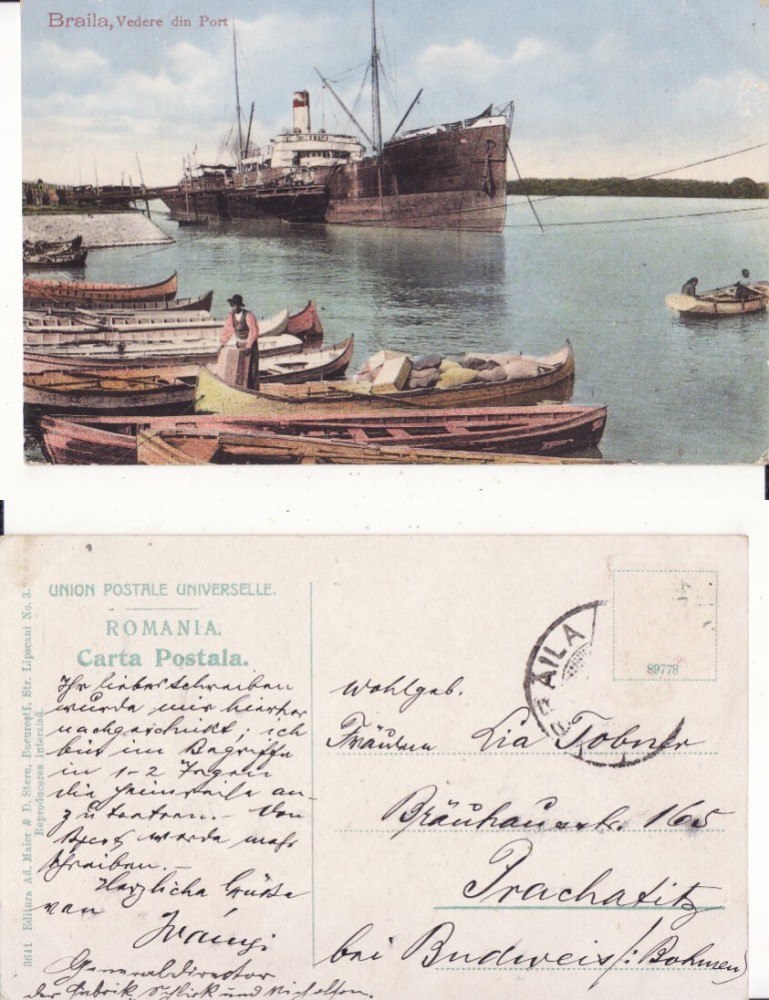 Braila, Vedere din Port
3641 Editura Ad. Maier & D. Stern, Bucureștĭ, Str. Lipscani No. 3.
Reproducerea interzisă.
UNION POSTALE UNIVERSELLE.
ROMANIA.
Carta Postala.
Ihr liebes Schreiben
wurde mir hierher
nachgeschickt; ich
bin im Begriffe
in 1-2 Tagen
die Heimreise an-
zutreten.- Von
werde mehr
schreiben.-
Herzliche Grüße
von
Generaldirector
der Fabrik Schlick und Nicholson.
BRAILA
89778
Wohlgeb.
Fräulein Lia Tobner
Bräuhausstr. 165
Prachatitz
bei Budweis (: Bohmen)